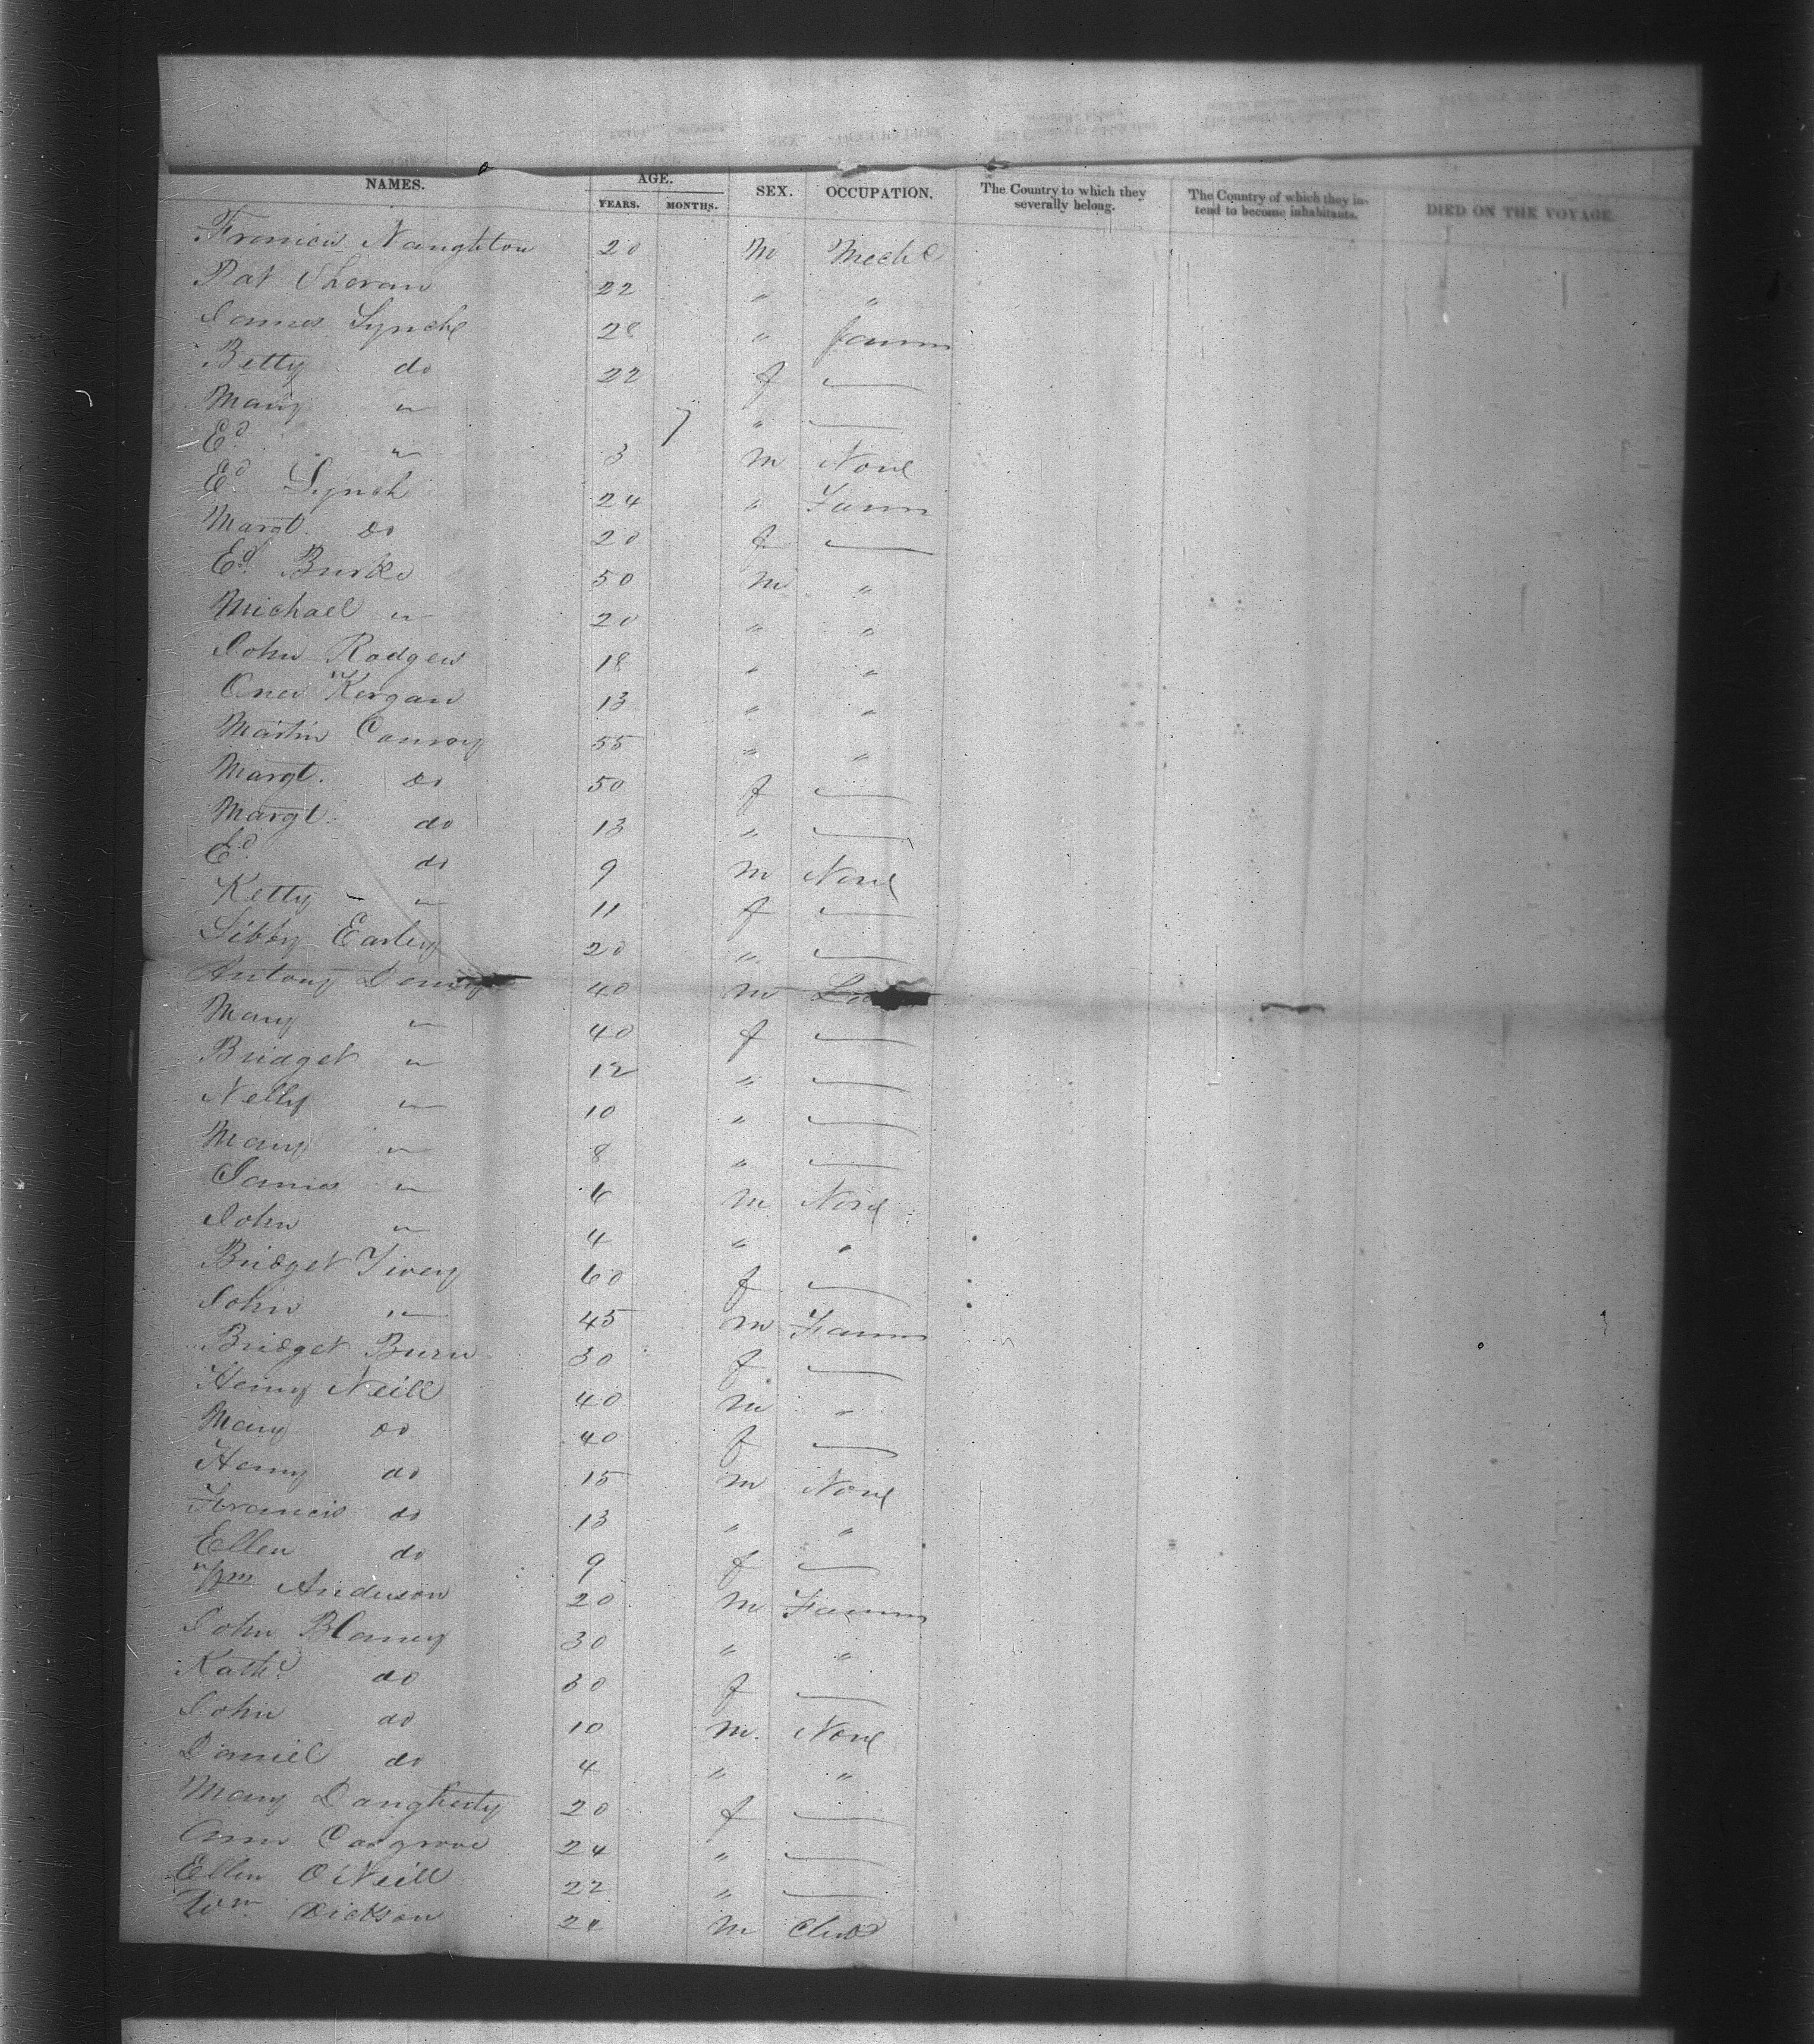 NAMES. AGE. SEX. OCCUPATION. The Country to which they severally belong. The Country of which they intend to become inhabitants. DIED ON THE VOYAGE.
YEARS. MONTHS.
Francis Naughton 20 m Mech
Pat Sheran 22 " "
James Lynch 28 " farm
Betty do 22 f —
Mary " 7 " —
Ed " 3 m None
Ed Lynch 24 " Farm
Margt. do 20 f —
Ed. Burke 50 m "
Michael " 20 " "
John Rodgers 18 " "
Kergan 13 " "
Martin Conroy 55 " "
Margt. do 50 f —
Margt. do 13 " —
Ed. do 9 m None
Kitty " 11 f —
Libby Earley 20 " —
Antony 40 m
Mary " 40 f —
Bridget " 12 " —
Nelly " 10 " —
Mary " 8 " —
James " 6 m None
John " 4 " "
Bridget 60 f —
John " 45 m Farm
Bridget Burn 30 f —
Henry Neill 40 m "
Mary do 40 f —
Henry do 15 m None
Francis do 13 " "
Ellen do 9 f —
Wm Anderson 20 m Farm
John Blaney 30 " "
Kath. do 30 f —
John do 10 m. None
Daniel do 4 " "
Mary Daugherty 20 f —
Ann Cosgrove 24 " —
Ellen O'Neill 22 " —
Wm. Dickson m